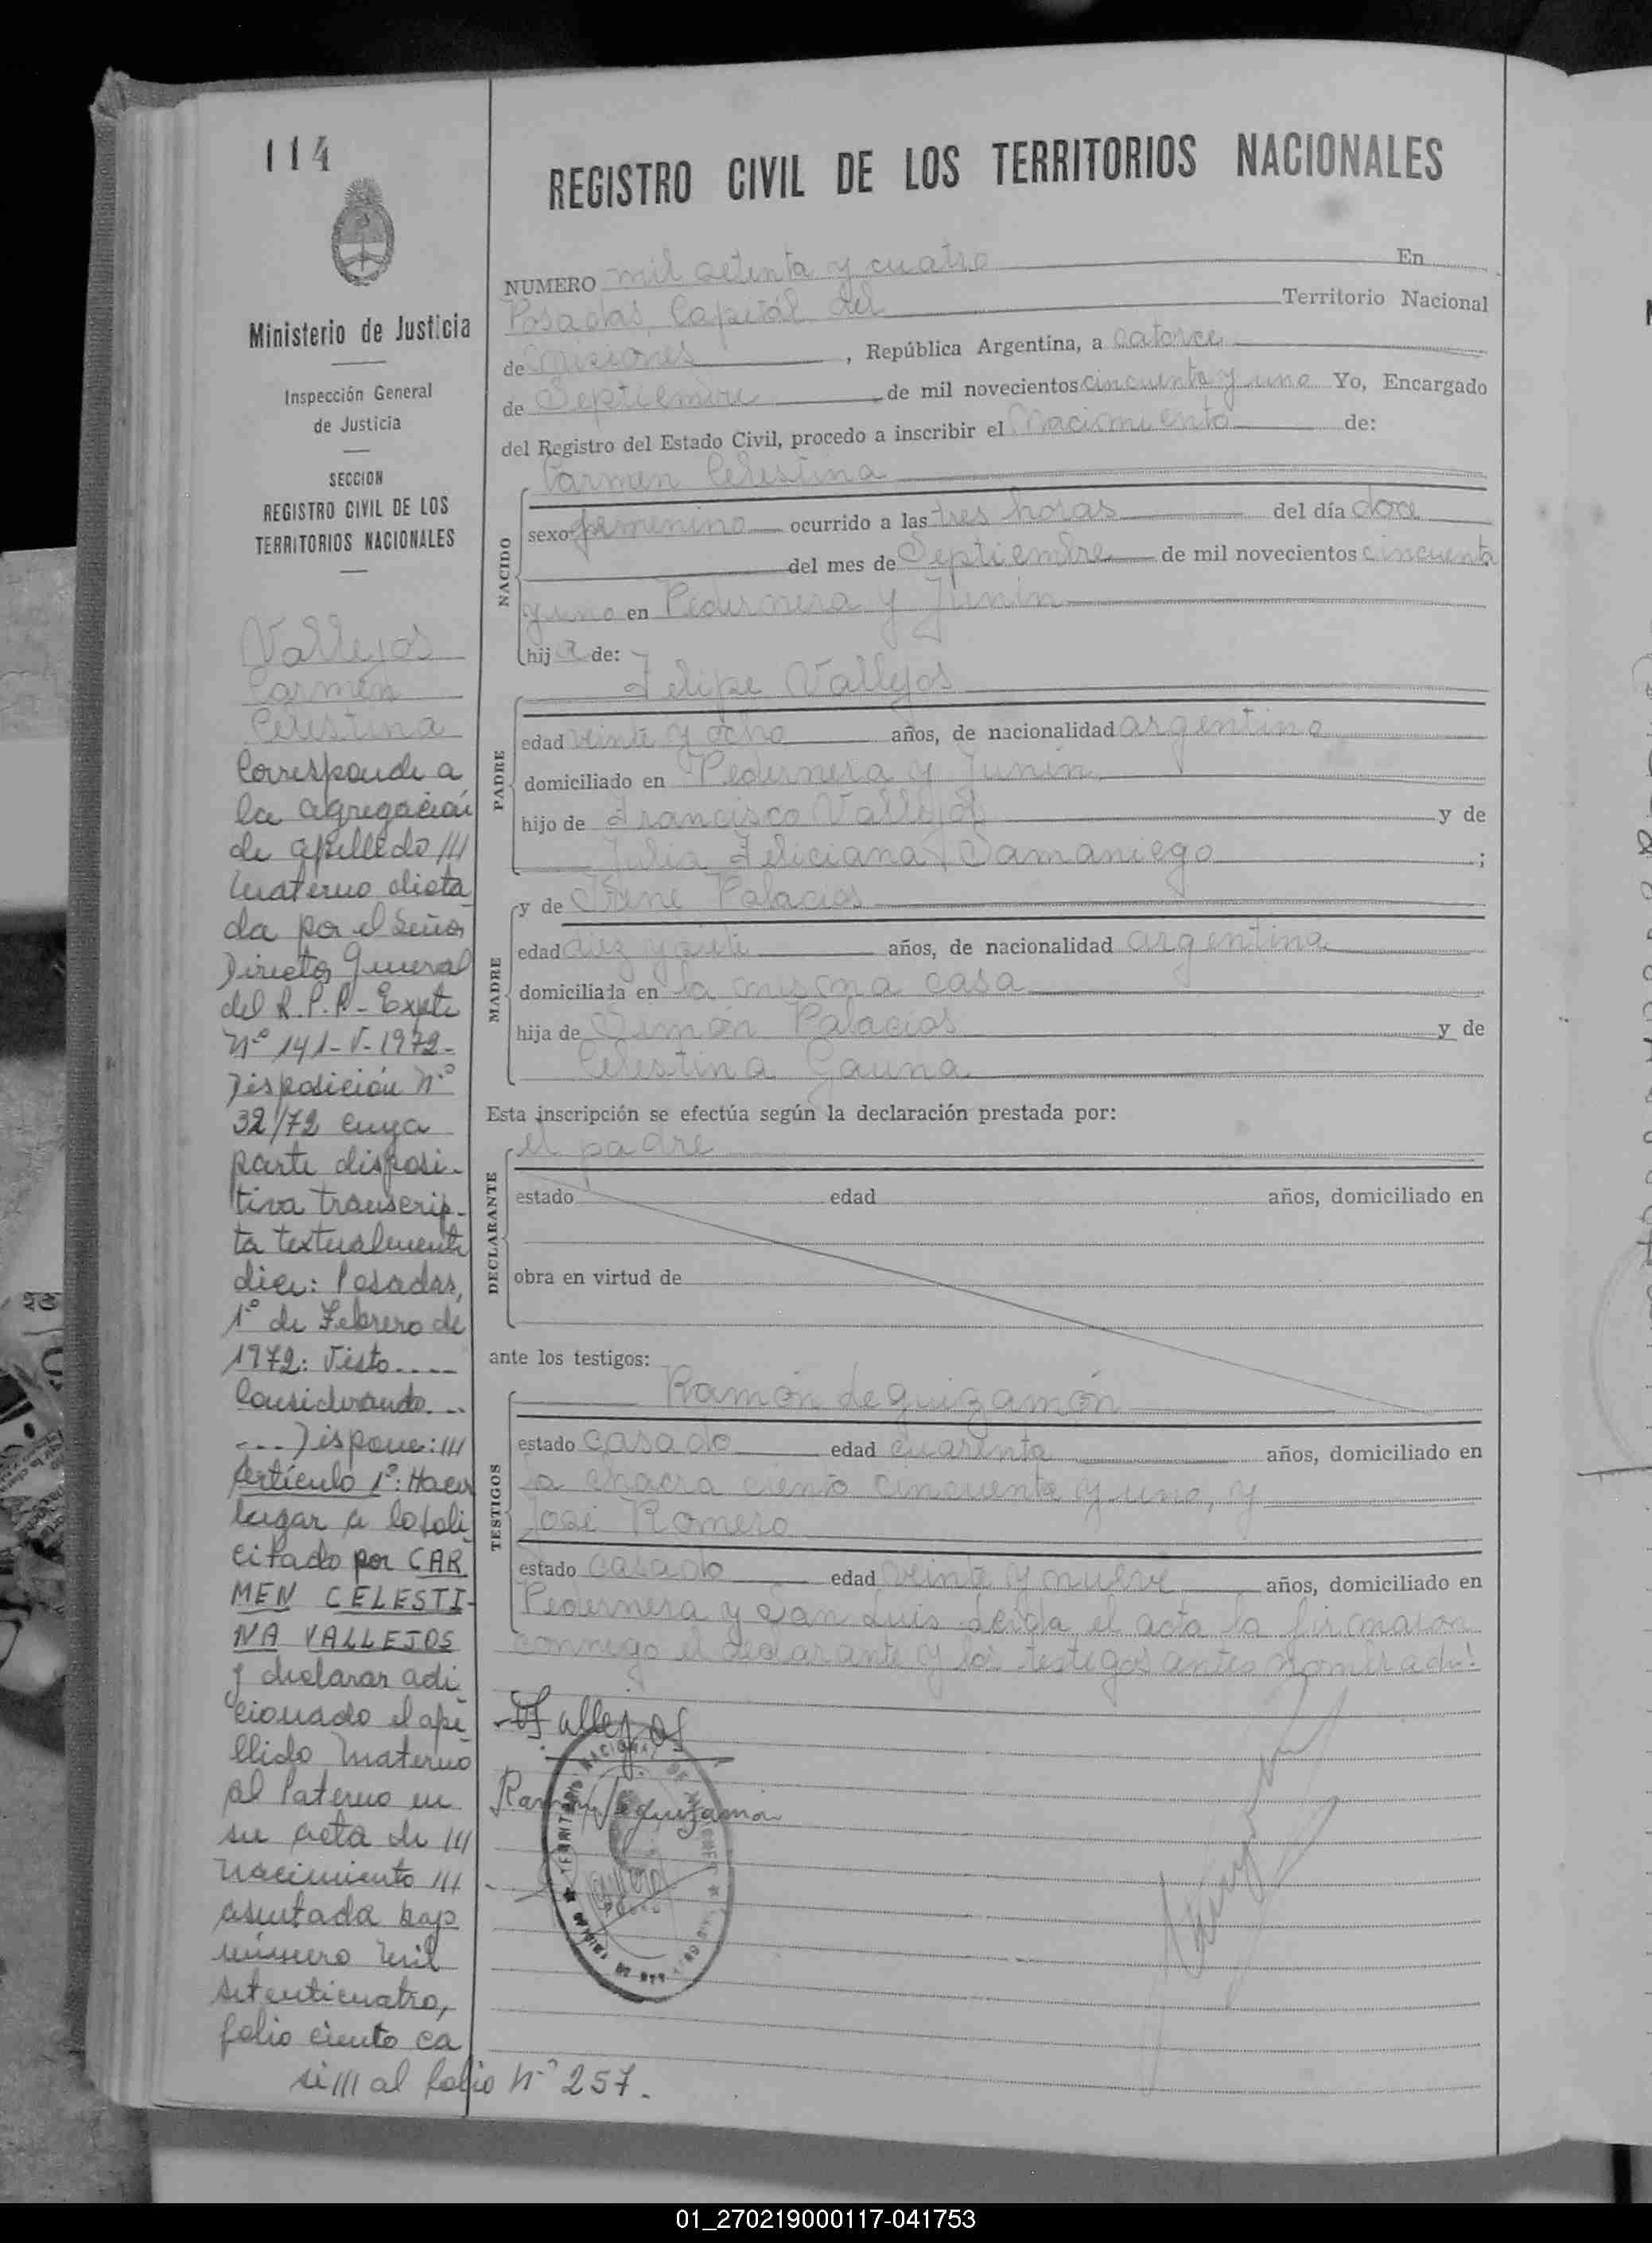 114
Ministerio de Justicia
Inspección General
de Justicia
SECCION
REGISTRO CIVIL DE LOS
TERRITORIOS NACIONALES
Vallejos
Carmen
Celestina
Corresponde a
la agregación
de apellido ///
materno dicta
da por el Señor
Director General
del R.P.P.- Expte
Nº 141-V-1972-
Disposición Nº
32/72 cuya
parte disposi-
tiva transcrip-
ta textualmente
dice: Posadas,
1º de Febrero de
1972: Visto....
Considerando...
... Dispone: ///
Artículo 1º: Hacer
lugar a lo soli
citado por CAR
MEN CELESTI-
NA VALLEJOS
y declarar adi
cionado el ape
llido materno
al Paterno en
su acta de ///
nacimiento ///
asentada bajo
número mil
setenticuatro,
folio ciento ca
si /// al folio Nº 257.
REGISTRO CIVIL DE LOS TERRITORIOS NACIONALES
NUMERO mil setenta y cuatro En
Posadas, Capital del Territorio Nacional
de Misiones, República Argentina, a catorce
de Septiembre de mil novecientos cincuenta y uno Yo, Encargado
del Registro del Estado Civil, procedo a inscribir el Nacimiento de:
Carmen Celestina
NACIDO
sexo femenino ocurrido a las tres horas del día doce
del mes de Septiembre de mil novecientos cincuenta
y uno en Pedernera y Junin
hija de:
Felipe Vallejos
PADRE
edad veinte y ocho años, de nacionalidad argentino
domiciliado en Pedernera y Junin
hijo de Francisco Vallejos y de
Julia Feliciana Samaniego ;
y de Irene Palacios
MADRE
edad diez y siete años, de nacionalidad argentina
domiciliada en la misma casa
hija de Simón Palacios y de
Celestina Gauna
Esta inscripción se efectúa según la declaración prestada por:
el padre
DECLARANTE
estado edad años, domiciliado en
obra en virtud de
ante los testigos:
Ramón Leguizamón
TESTIGOS
estado casado edad cuarenta años, domiciliado en
la chacra ciento cincuenta y uno, y
José Romero
estado casado edad veinte y nueve años, domiciliado en
Pedernera y San Luis Leída el acta la firmaron
conmigo el declarante y los testigos antes nombrados
F Vallejos
Ramón Leguizamón
01_270219000117-041753